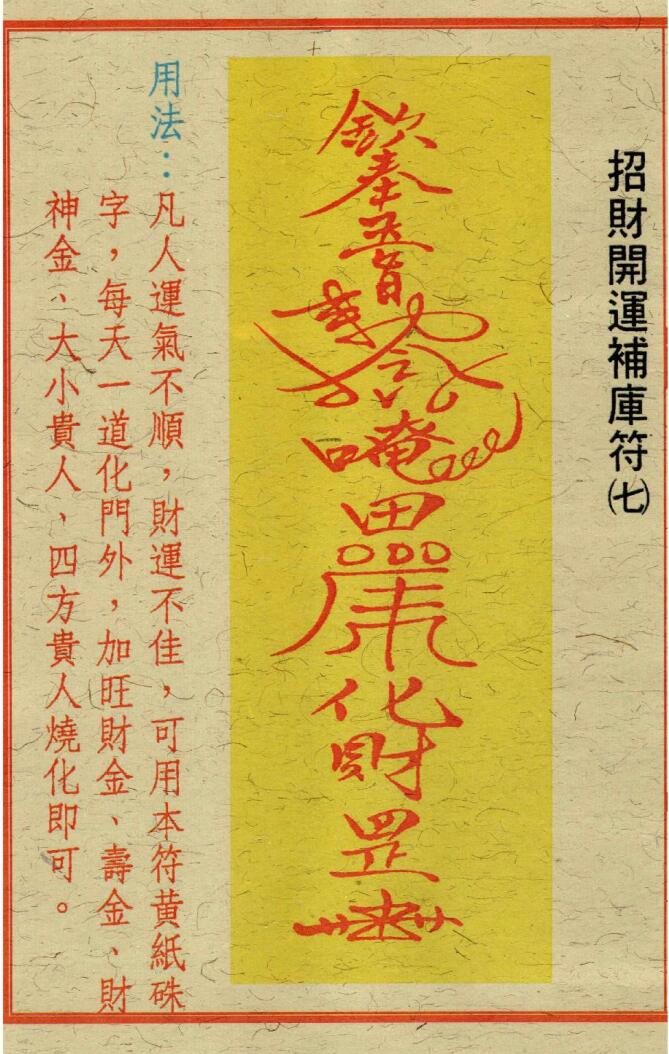 招財開運補庫符㈦
欽奉
唵
田
化
財
罡
用法：凡人運氣不順，財運不佳，可用本符黃紙硃
字，每天一道化門外，加旺財金、壽金、財
神金、大小貴人，四方貴人燒化即可。